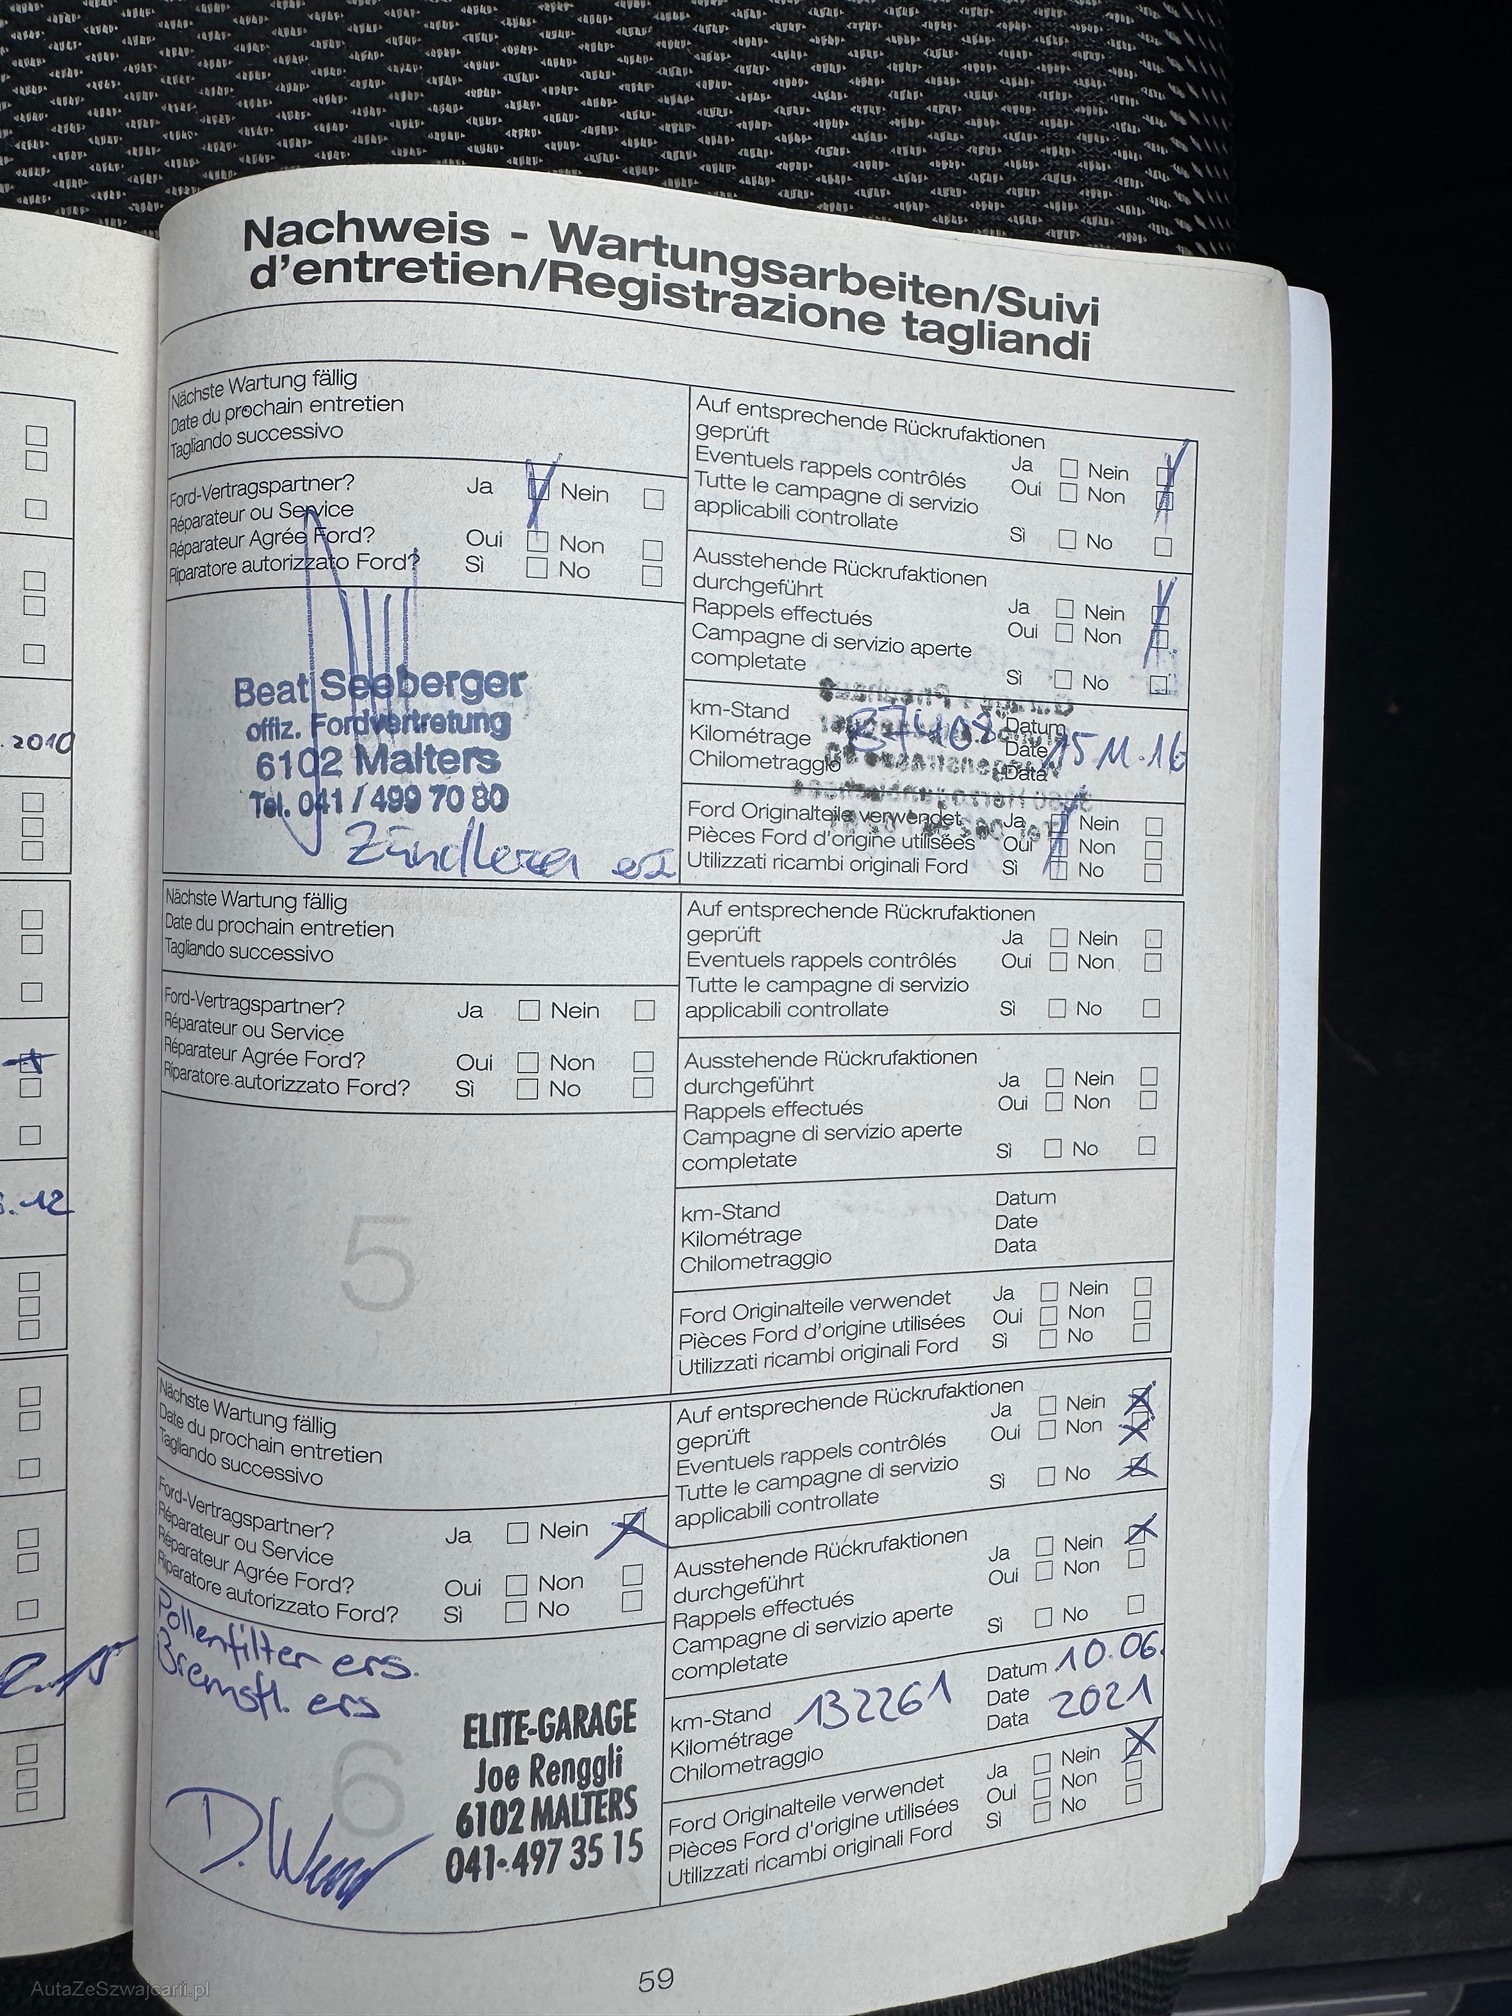 Nachweis - Wartungsarbeiten/Suivi
d'entretien/Registrazione tagliandi
Nächste Wartung fällig
Date du prochain entretien
Tagliando successivo
Ford-Vertragspartner?
Réparateur ou Service
Réparateur Agrée Ford?
Riparatore autorizzato Ford?
Ja Nein
Oui Non
Sì No
Beat Seeberger
offiz. Fordvertretung
6102 Malters
Tel. 041 / 499 70 80
Auf entsprechende Rückrufaktionen
geprüft
Eventuels rappels contrôlés
Tutte le campagne di servizio
applicabili controllate
Ja Nein
Oui Non
Sì No
Ausstehende Rückrufaktionen
durchgeführt
Rappels effectués
Campagne di servizio aperte
completate
Ja Nein
Oui Non
Sì No
km-Stand
Kilométrage
Chilometraggio
Datum
Date
Data
15.11.16
Ford Originalteile verwendet
Pièces Ford d'origine utilisées
Utilizzati ricambi originali Ford
Ja Nein
Oui Non
Sì No
Nächste Wartung fällig
Date du prochain entretien
Tagliando successivo
Ford-Vertragspartner?
Réparateur ou Service
Réparateur Agrée Ford?
Riparatore autorizzato Ford?
Ja Nein
Oui Non
Sì No
5
Auf entsprechende Rückrufaktionen
geprüft
Eventuels rappels contrôlés
Tutte le campagne di servizio
applicabili controllate
Ja Nein
Oui Non
Sì No
Ausstehende Rückrufaktionen
durchgeführt
Rappels effectués
Campagne di servizio aperte
completate
Ja Nein
Oui Non
Sì No
km-Stand
Kilométrage
Chilometraggio
Datum
Date
Data
Ford Originalteile verwendet
Pièces Ford d'origine utilisées
Utilizzati ricambi originali Ford
Ja Nein
Oui Non
Sì No
Nächste Wartung fällig
Date du prochain entretien
Tagliando successivo
Ford-Vertragspartner?
Réparateur ou Service
Réparateur Agrée Ford?
Riparatore autorizzato Ford?
Ja Nein
Oui Non
Sì No
Pollenfilter ers.
Bremsfl. ers
6
ELITE-GARAGE
Joe Renggli
6102 MALTERS
041-497 35 15
Auf entsprechende Rückrufaktionen
geprüft
Eventuels rappels contrôlés
Tutte le campagne di servizio
applicabili controllate
Ja Nein
Oui Non
Sì No
Ausstehende Rückrufaktionen
durchgeführt
Rappels effectués
Campagne di servizio aperte
completate
Ja Nein
Oui Non
Sì No
km-Stand
Kilométrage
Chilometraggio
132261
Datum 10.06.
Date 2021
Data
Ford Originalteile verwendet
Pièces Ford d'origine utilisées
Utilizzati ricambi originali Ford
Ja Nein
Oui Non
Sì No
59
. 2010
.12
AutaZeSzwajcarii.pl